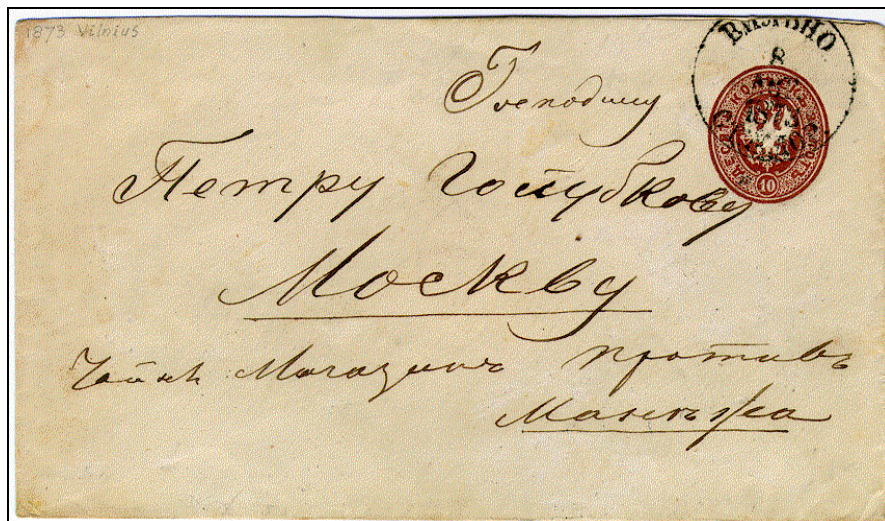 1873 Vilnius
ВИЛЬНО
8
1873
10
Господину
Петру Голубкову
Москву
Чайн Магазинъ противъ
Манежа